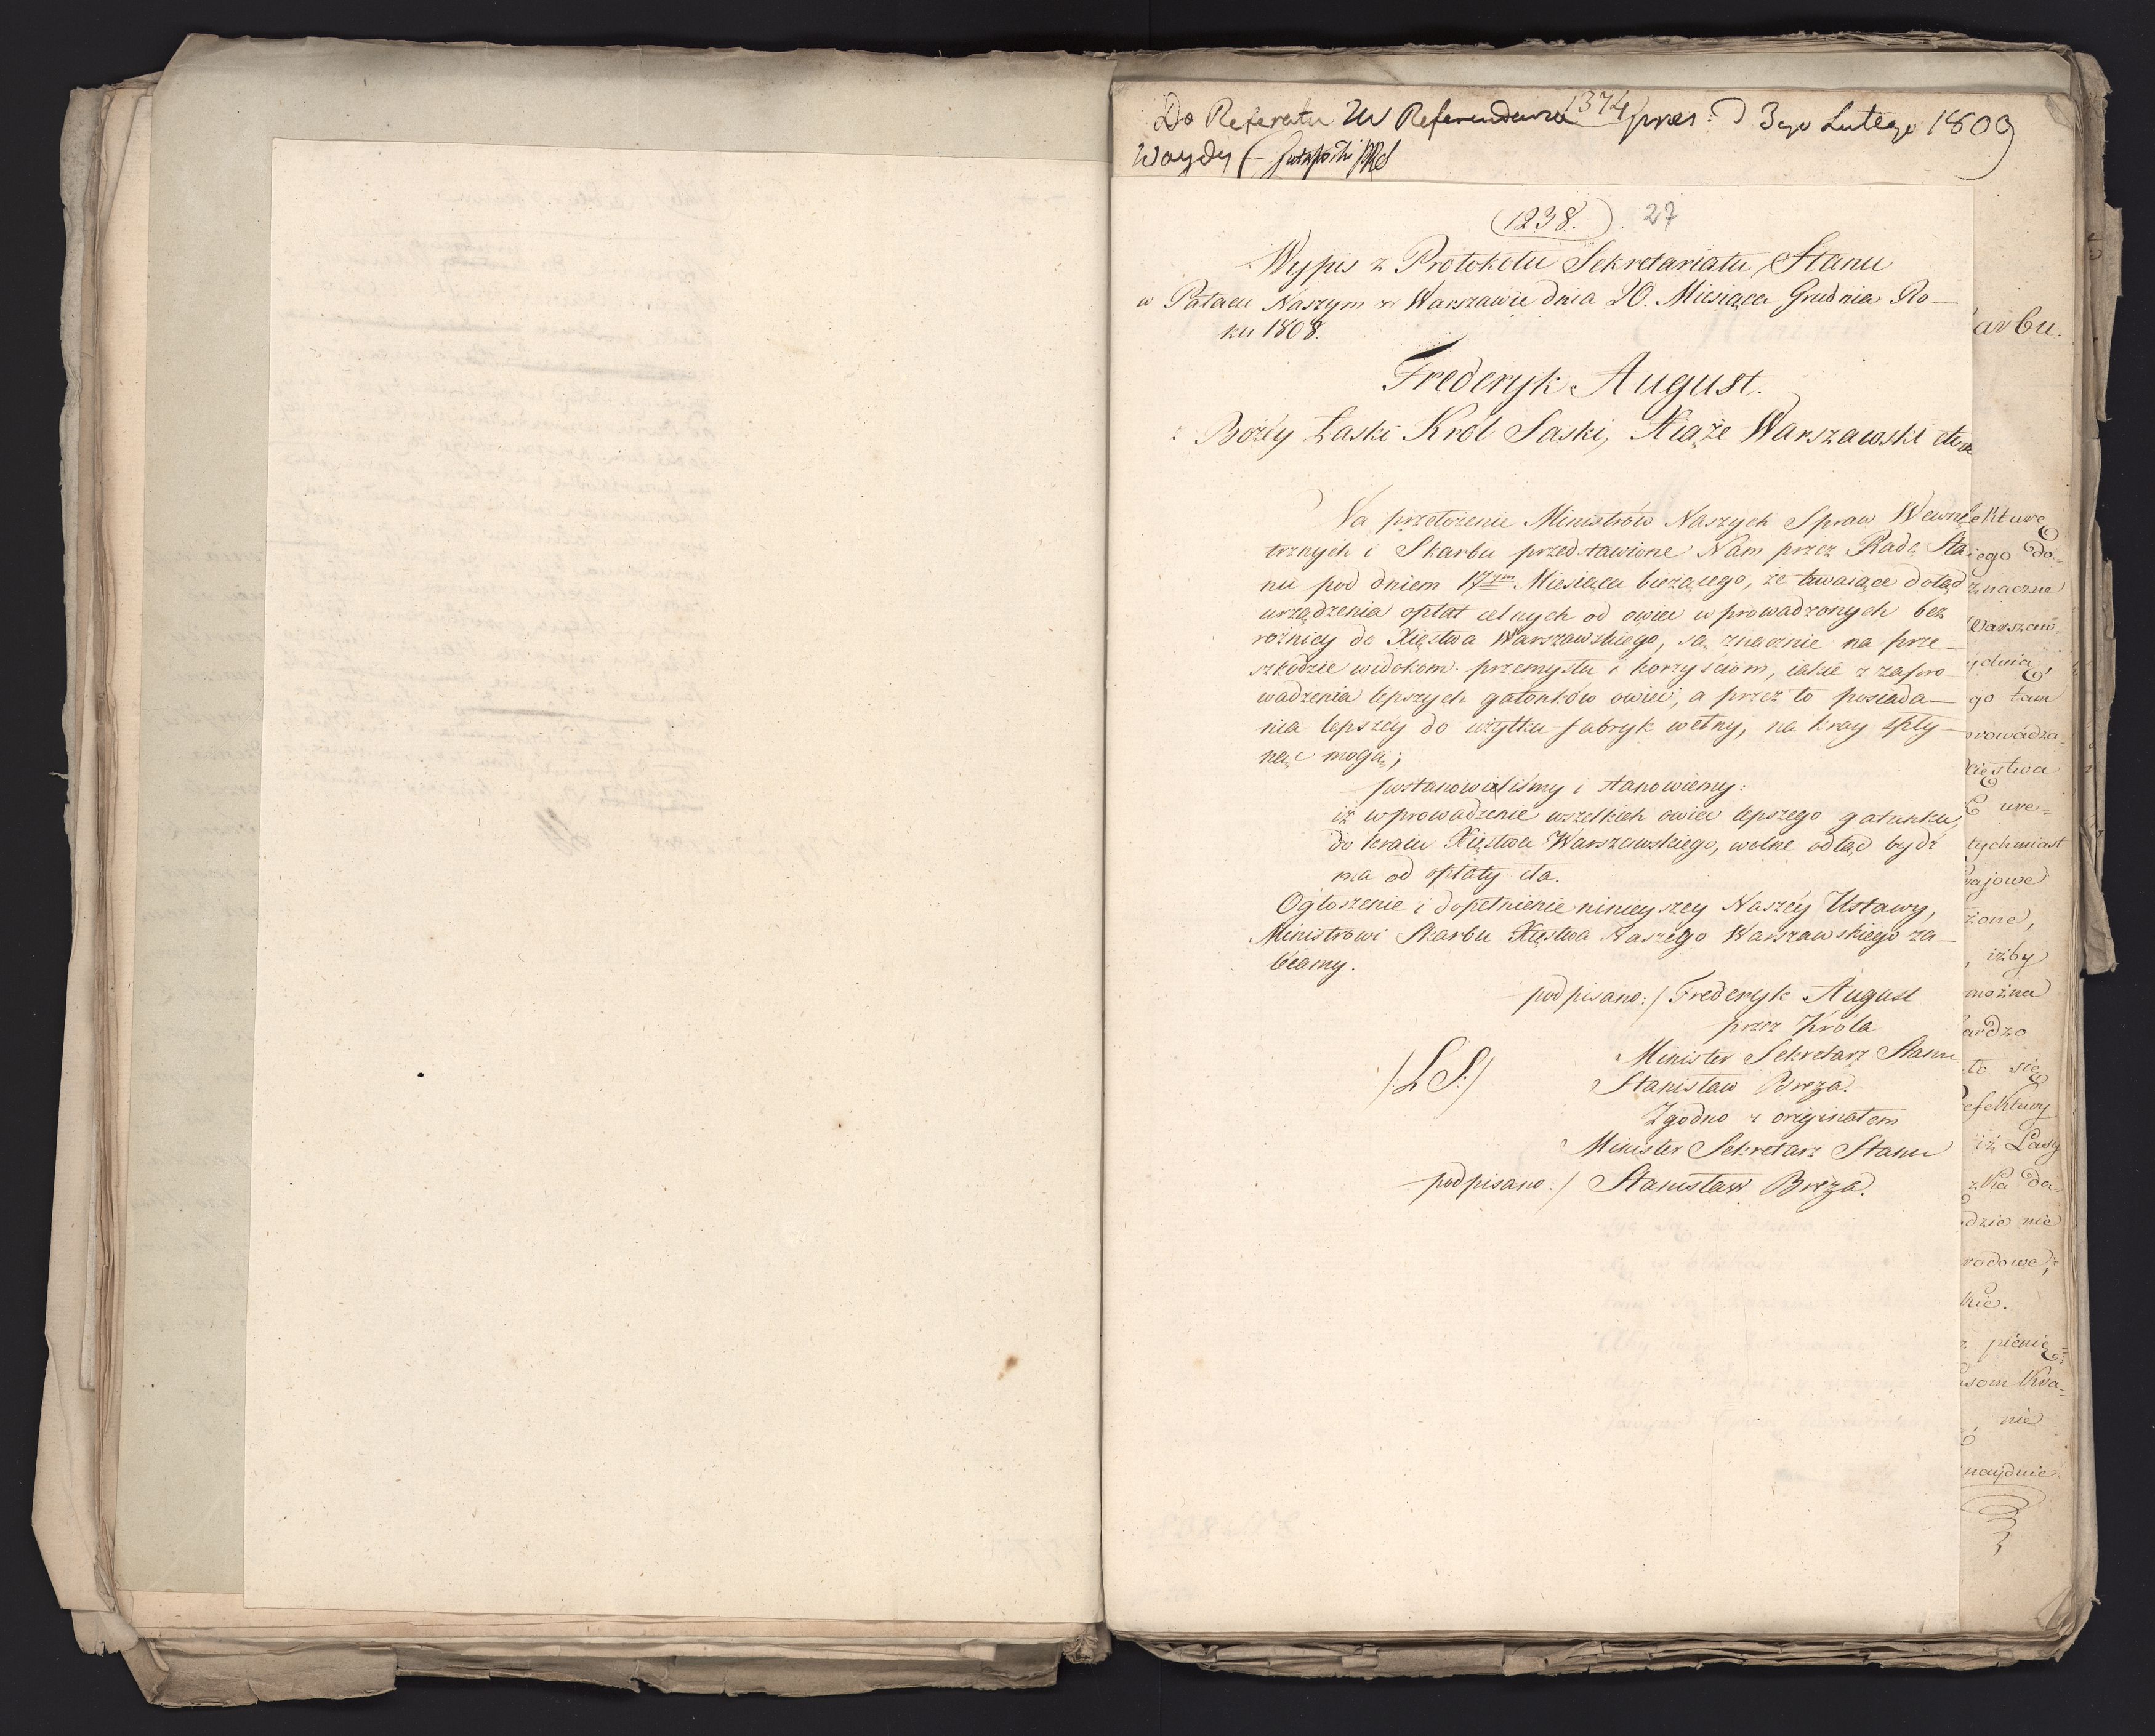 Do Referatu W Referendarza 1374 pres: D 3go Lutego 1809
Woydy
1238. 27
Wypis z Protokołu Sekretariatu Stanu
w Pałacu Naszym w Warszawie dnia 20. Miesiąca Grudnia Ro-
ku 1808.
Frederyk August.
z Bożéy Łaski Król Saski, Xiąże Warszawski etc
Na przełożenie Ministrów Naszych Spraw Wewnę
trznych i Skarbu przedstawione Nam przez Radę Sta
nu pod dniem 17ym Miesiąca bieżącego, że trwaiące dotąd
urządzenia opłat celnych od owiec wprowadzonych bez
rożnicy do Xięstwa Warszawskiego, są znacznie na prze-
szkodzie widokom przemysłu i korzyściom, iakie z zapro
wadzenia lepszych gatonków owiec, a przez to posiada-
nia lepszéy do użytku fabryk wełny, na kray spły-
nąć mogą;
postanowiliśmy i stanowiemy:
iż wprowadzenie wszelkich owiec lepszego gatunku,
do kraiu Xięstwa Warszawskiego, wolne odtąd bydź
ma od opłaty cła.
Ogłoszenie i dopełnienie ninieyszey Naszéy Ustawy,
Ministrowi Skarbu Xięstwa Naszego Warszawskiego za-
lecamy.
podpisano:/ Frederyk August
przez Króla
Minister Sekretarz Stanu
/:L S:/ Stanisław Breza.
Zgodno z originałem
Minister Sekretarz Stanu
podpisano:/ Stanisław Breza.
arbu.
ekturę
iego do=
znaczne
Warszaw=
ydnia
go tam
rowadza=
Xięstwa
ure=
tychmiast
rajowe
żone,
, iżby
można
ardzo
to się
efektury
iż Lasy
zka da=
dzie nie
rodowe,
kie.
z pienię=
asom Kra=
, nie
naydnie